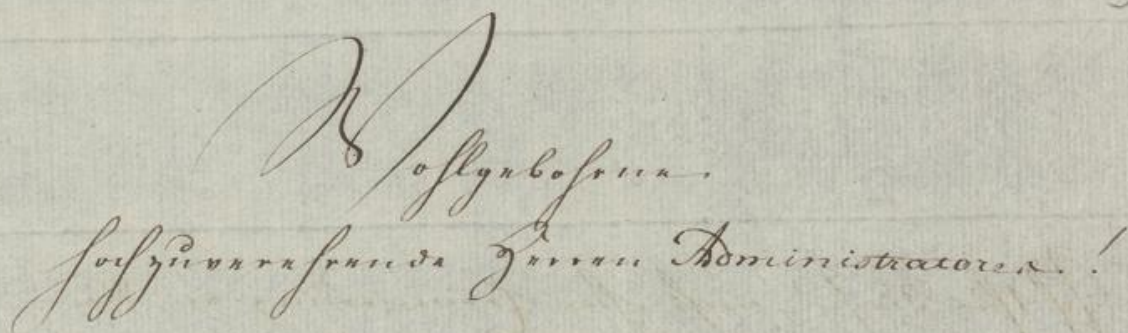 Wohlgebohrne.
hochzuverehrende Herren Administratores.!